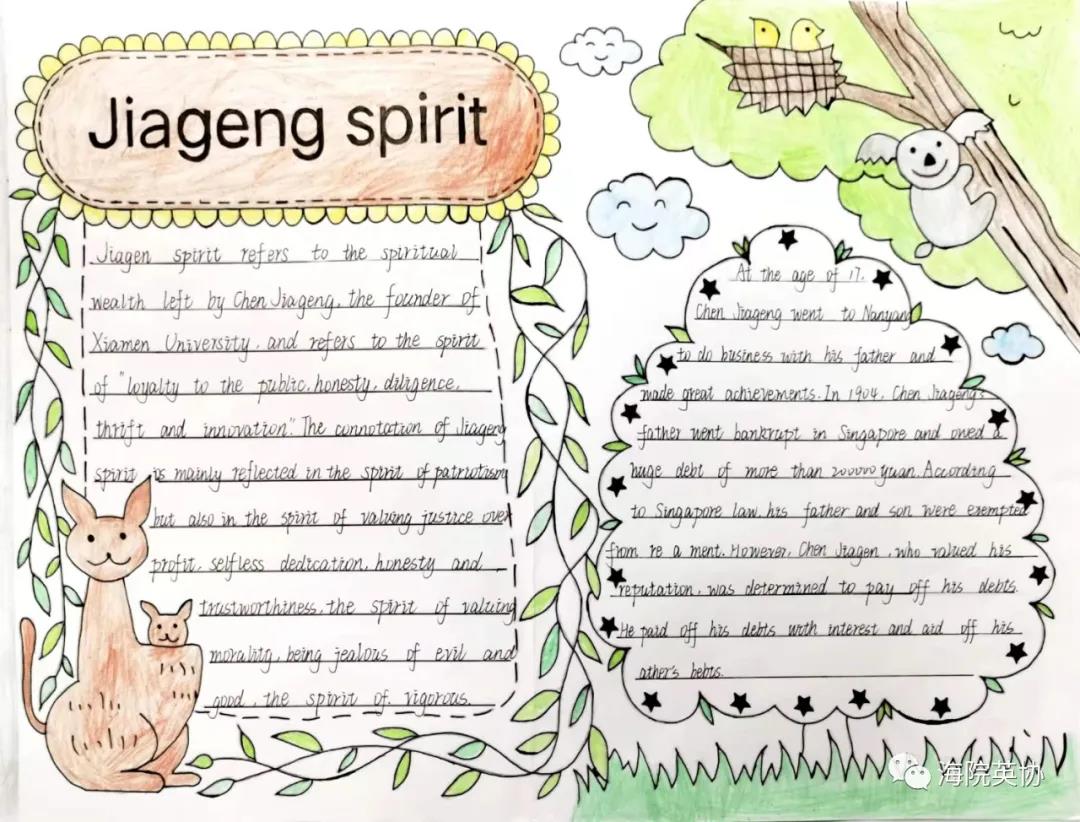 Jiageng spirit
Jiagen spirit refers to the spiritual
wealth left by Chen Jiageng, the founder of
Xiamen University, and refers to the spirit
of "loyalty to the public, honesty, diligence,
thrift and innovation". The connotation of Jiageng
spirit is mainly reflected in the spirit of patriotism
but also in the spirit of valuing justice over
profit, selfless dedication, honesty and
trustworthiness, the spirit of valuing
morality, being jealous of evil and
good, the spirit of vigorous.
At the age of 17,
Chen Jiageng went to Nanyang
to do business with his father and
made great achievements. In 1904, Chen Jiageng's
father went bankrupt in Singapore and owed a
huge debt of more than 200000 yuan. According
to Singapore law, his father and son were exempted
from re a ment. However, Chen Jiagen, who valued his
reputation, was determined to pay off his debts.
He paid off his debts with interest and aid off his
ather's bebts.
海院英协